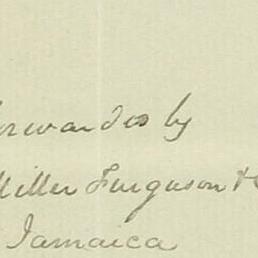 forwarded by
Miller Furguson + C
Jamaica